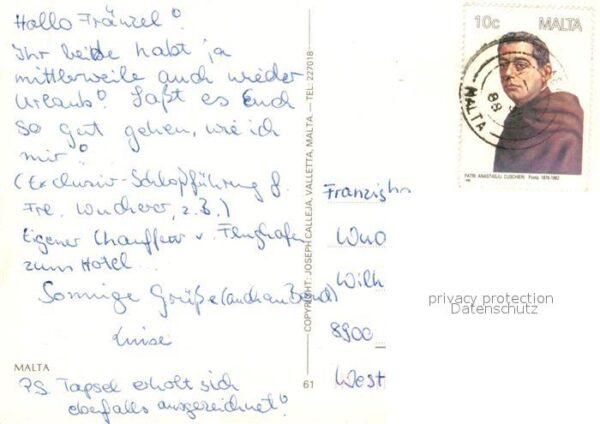 Hallo Fränzel!
Ihr beide habt ja
mittlerweile auch wieder
Urlaub! Laßt es Euch
so gut gehen, wie ich
mir!
(Exclusiv-Schlopführung f.
Fre. Wucherer, z.B.)
Eigener Chauffeur v. Flughafen
zum Hotel...
Sonnige Grüße (auch an Bernd)
Luise
MALTA
P.S. Tapsel erholt sich
ebenfalls ausgezeichnet!
COPYRIGHT: JOSEPH CALLEJA, VALLETTA, MALTA. — TEL: 227018
61
10c MALTA
MALTA
88
PATRI ANASTASJU CUSCHIERI Poeta 1876-1962
Wilh
8900
West
privacy protection
Datenschutz